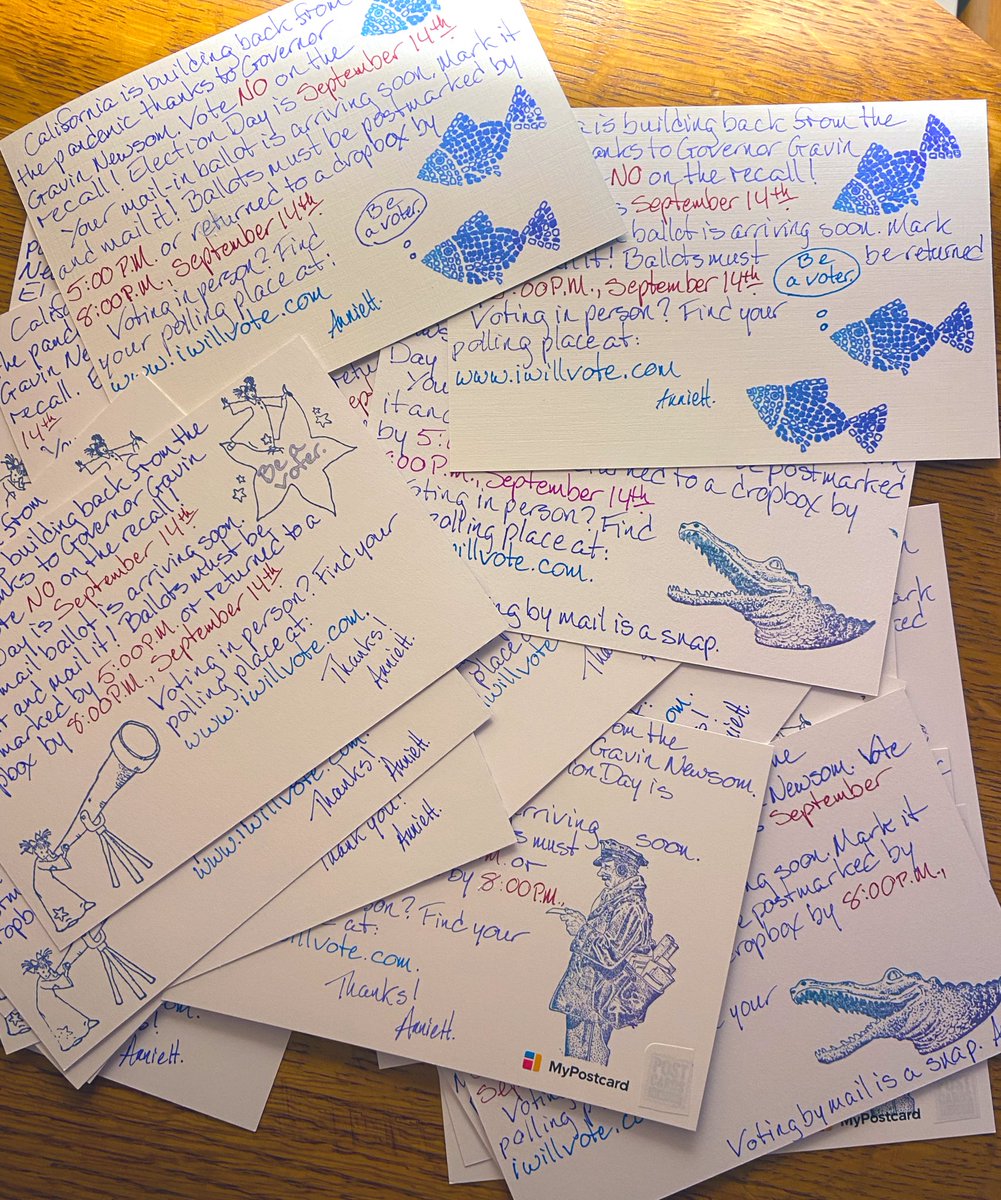 California is building back from
the pandemic thanks to Governor
Gavin Newsom. Vote NO on the
recall! Election Day is September 14th
Your mail-in ballot is arriving soon. Mark it
and mail it! Ballots must be postmarked by
5:00 P.M. or returned to a dropbox by
8:00 P.M., September 14th.
Voting in person? Find
your polling place at:
www.iwillvote.com
AnnieH.
Be
a voter.
is building back from the
thanks to Governor Gavin
NO on the recall!
September 14th
ballot is arriving soon. Mark
it! Ballots must be returned
5:00 P.M., September 14th
Voting in person? Find your
polling place at:
www.iwillvote.com
AnnieH.
Be
a voter.
Day
You
it and
by 5:
returned to a dropbox by
postmarked
:00 P.M., September 14th
Voting in person? Find
polling place at:
iwillvote.com.
Voting by mail is a snap.
building back from the
thanks to Governor Gavin
NO on the recall!
Day is September 14th
mail ballot is arriving soon.
and mail it! Ballots must be
by 5:00 P.M. or returned to a
by 8:00 P.M., September 14th
Voting in person? Find your
polling place at:
www.iwillvote.com.
Thanks!
AnnieH.
Be a
voter.
www.iwillvote.com.
Thanks!
AnnieH.
Thank you!
AnnieH.
from the
Gavin Newsom.
Day is
arriving soon.
must
P.M. or
by 8:00 P.M.,
Find your
at:
iwillvote.com.
Thanks!
AnnieH.
MyPostcard
Newsom. Vote
September
soon. Mark it
postmarked by
dropbox by 8:00 P.M.,
your
Voting
polling
iwillvote.com
Voting by mail is a snap.
MyPostcard
AnnieH.